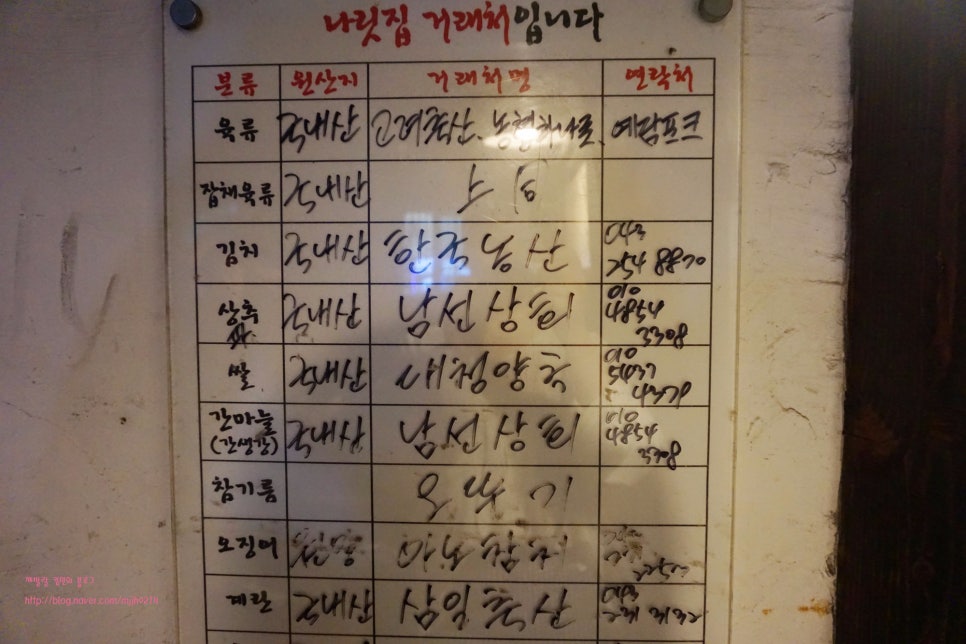 나릿집 거래처입니다
분류 원산지 거래처명 연락처
육류 국내산 고려축산. 농협하나로. 예담포크
잡채육류 국내산
김치 국내산 한국농산 043 254 8870
상추 국내산 남선상회 010 4854 3308
쌀 국내산 대청양곡 010 5437 4370
간마늘 (간생강) 국내산 남선상회 010 4854 3308
참기름 오뚜기
오징어
계란 국내산 삼일축산 043 231 3132